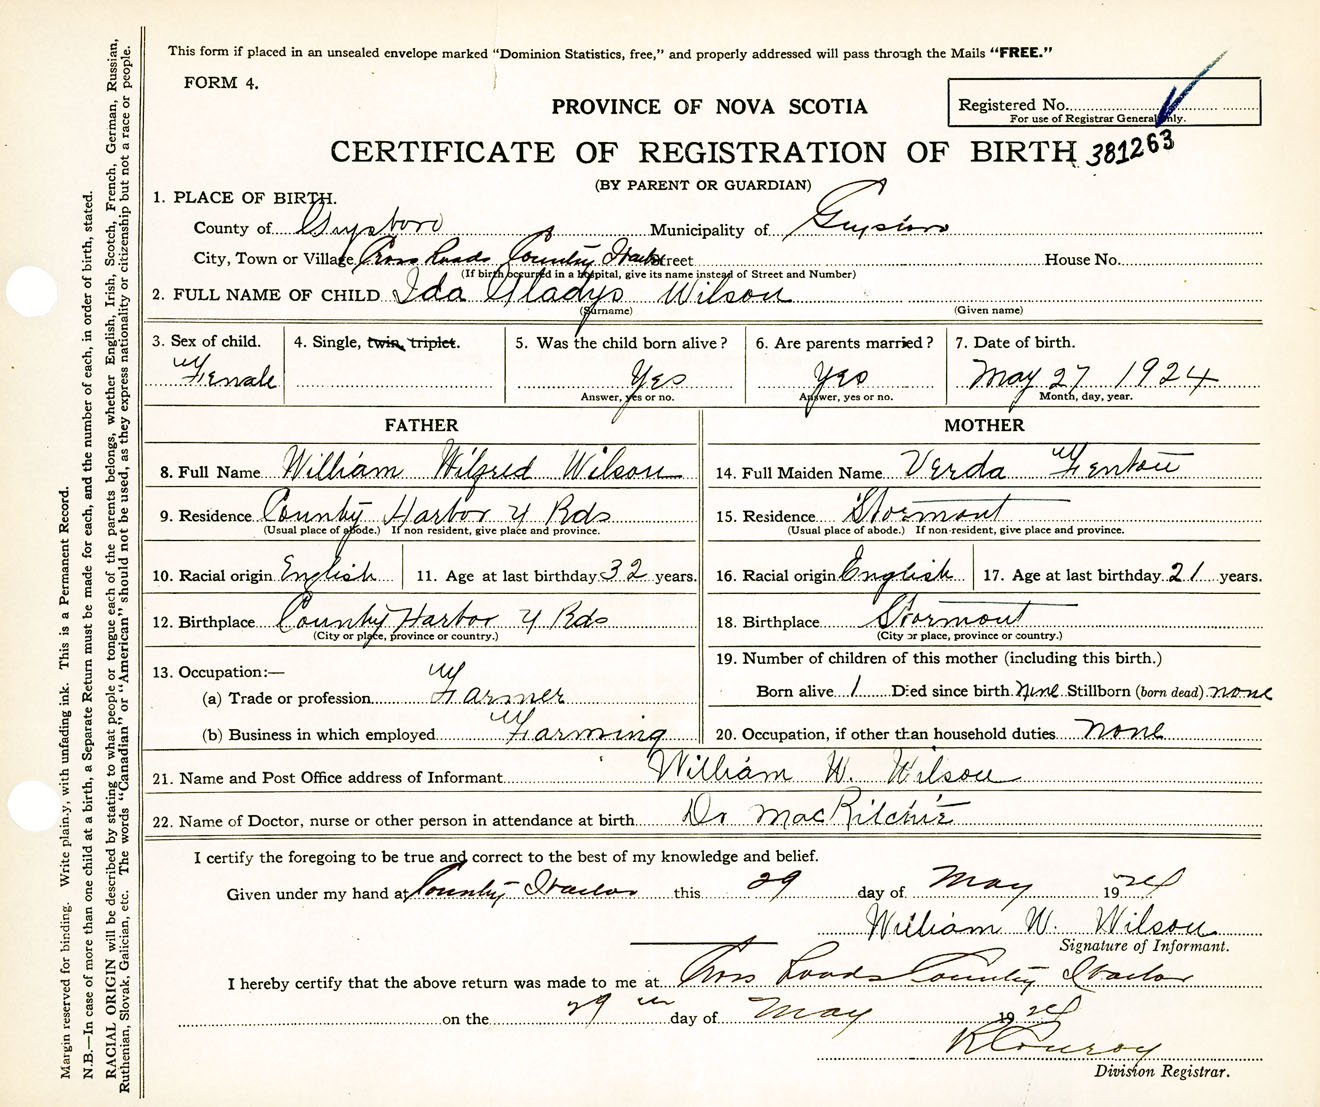 This form if placed in an unsealed envelope marked "Dominion Statistics, free," and properly addressed will pass through the Mails "FREE."
FORM 4.
PROVINCE OF NOVA SCOTIA
Registered No.
For use of Registrar General only.
CERTIFICATE OF REGISTRATION OF BIRTH 381263
(BY PARENT OR GUARDIAN)
1. PLACE OF BIRTH.
County of Guysboro Municipality of
City, Town or Village Cross Roads Country Harbor Street House No.
(If birth occurred in a hospital, give its name instead of Street and Number)
2. FULL NAME OF CHILD Ida Gladys Wilson
(Surname) (Given name)
3. Sex of child. 4. Single, twin, triplet. 5. Was the child born alive? 6. Are parents married? 7. Date of birth.
Female Yes Yes May 27 1924
Answer, yes or no. Answer, yes or no. Month, day, year.
FATHER MOTHER
8. Full Name William Wilfred Wilson 14. Full Maiden Name Verda Fenton
9. Residence Country Harbor X Rds 15. Residence Stormont
(Usual place of abode.) If non resident, give place and province. (Usual place of abode.) If non-resident, give place and province.
10. Racial origin English 11. Age at last birthday 32 years. 16. Racial origin English 17. Age at last birthday 21 years.
12. Birthplace Country Harbor X Rds 18. Birthplace Stormont
(City or place, province or country.) (City or place, province or country.)
13. Occupation:— 19. Number of children of this mother (including this birth.)
(a) Trade or profession Farmer Born alive 1 Died since birth None Stillborn (born dead) none
(b) Business in which employed Farming 20. Occupation, if other than household duties none
21. Name and Post Office address of Informant William W. Wilson
22. Name of Doctor, nurse or other person in attendance at birth Dr MacRitchie
I certify the foregoing to be true and correct to the best of my knowledge and belief.
Given under my hand at Country Harbor this 29 day of May 1924
William W. Wilson
Signature of Informant.
I hereby certify that the above return was made to me at Cross Roads Country Harbor
on the 29th day of May 1924
R Conroy
Division Registrar.
Margin reserved for binding. Write plainly, with unfading ink. This is a Permanent Record.
N.B.—In case of more than one child at a birth, a Separate Return must be made for each, and the number of each, in order of birth, stated.
RACIAL ORIGIN will be described by stating to what people or tongue each of the parents belongs, whether English, Irish, Scotch, French, German, Russian,
Ruthenian, Slovak, Galician, etc. The words "Canadian" or "American" should not be used, as they express nationality or citizenship but not a race or people.